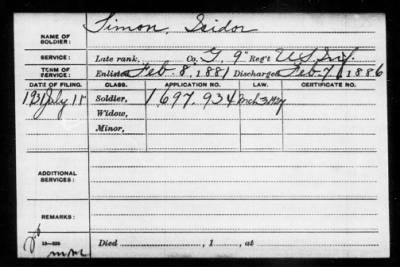 NAME OF SOLDIER: Simon, Isidor
SERVICE: Late rank, Co. G, 9" Reg't U.S. Inf.
TERM OF SERVICE: Enlisted Feb. 8, 1881 Discharged Feb. 7, 1886
DATE OF FILING. CLASS. APPLICATION NO. LAW. CERTIFICATE NO.
1931 July 11 Soldier, 1697.934
Widow,
Minor,
ADDITIONAL SERVICES:
REMARKS:
Died , 1 , at